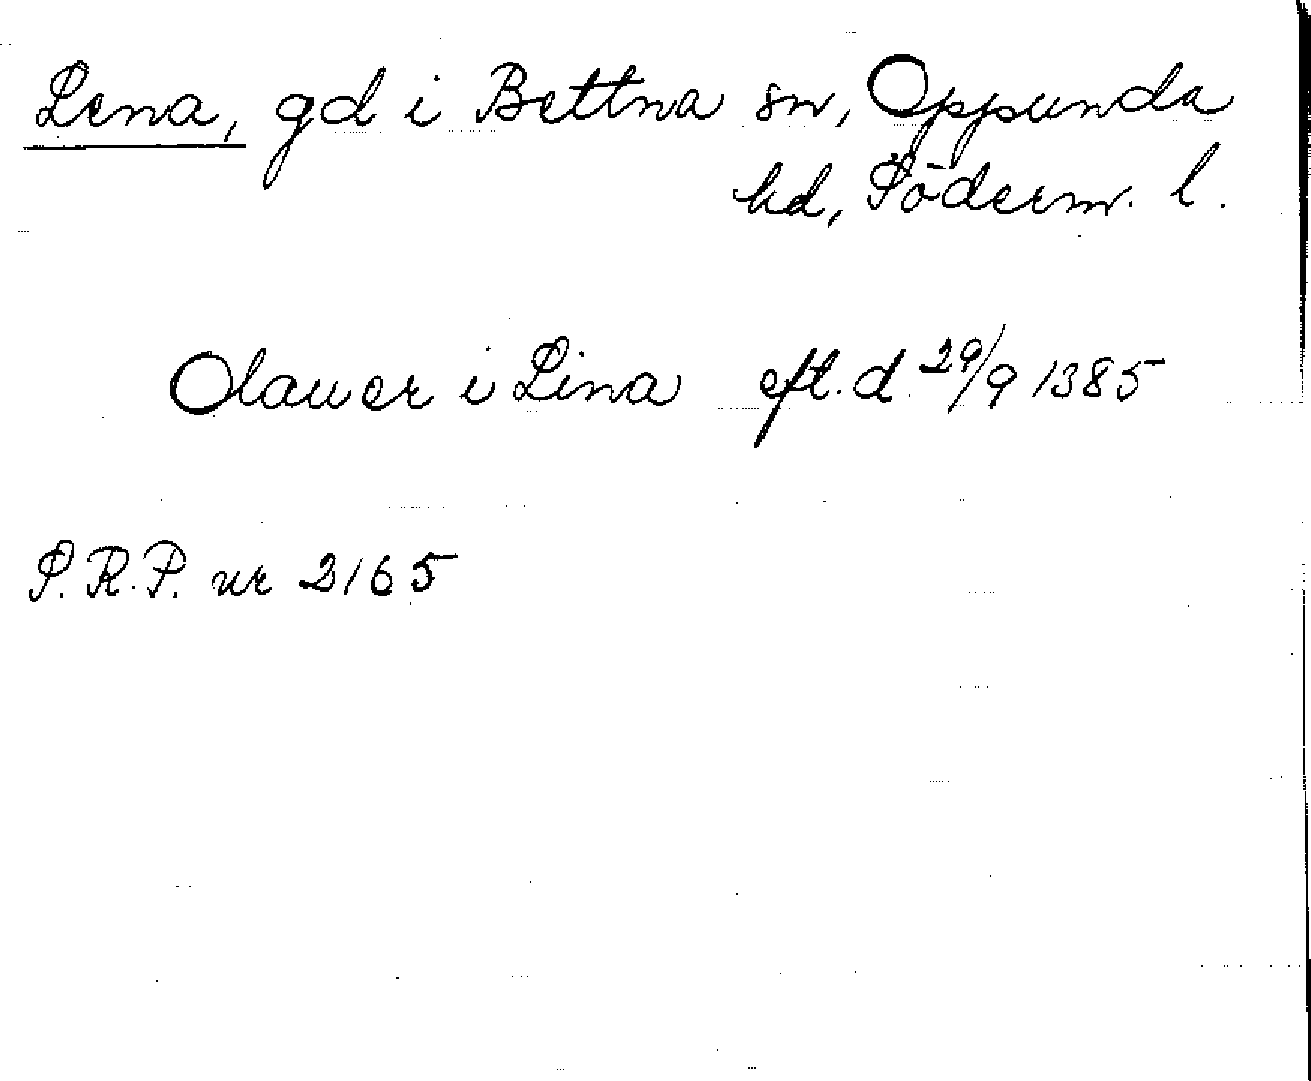 Lena, gd i Bettna sn, Oppunda
hd, Söderm. l.
Olauer i Lina eft. d. 29/9 1385
S.R.P. nr 2165